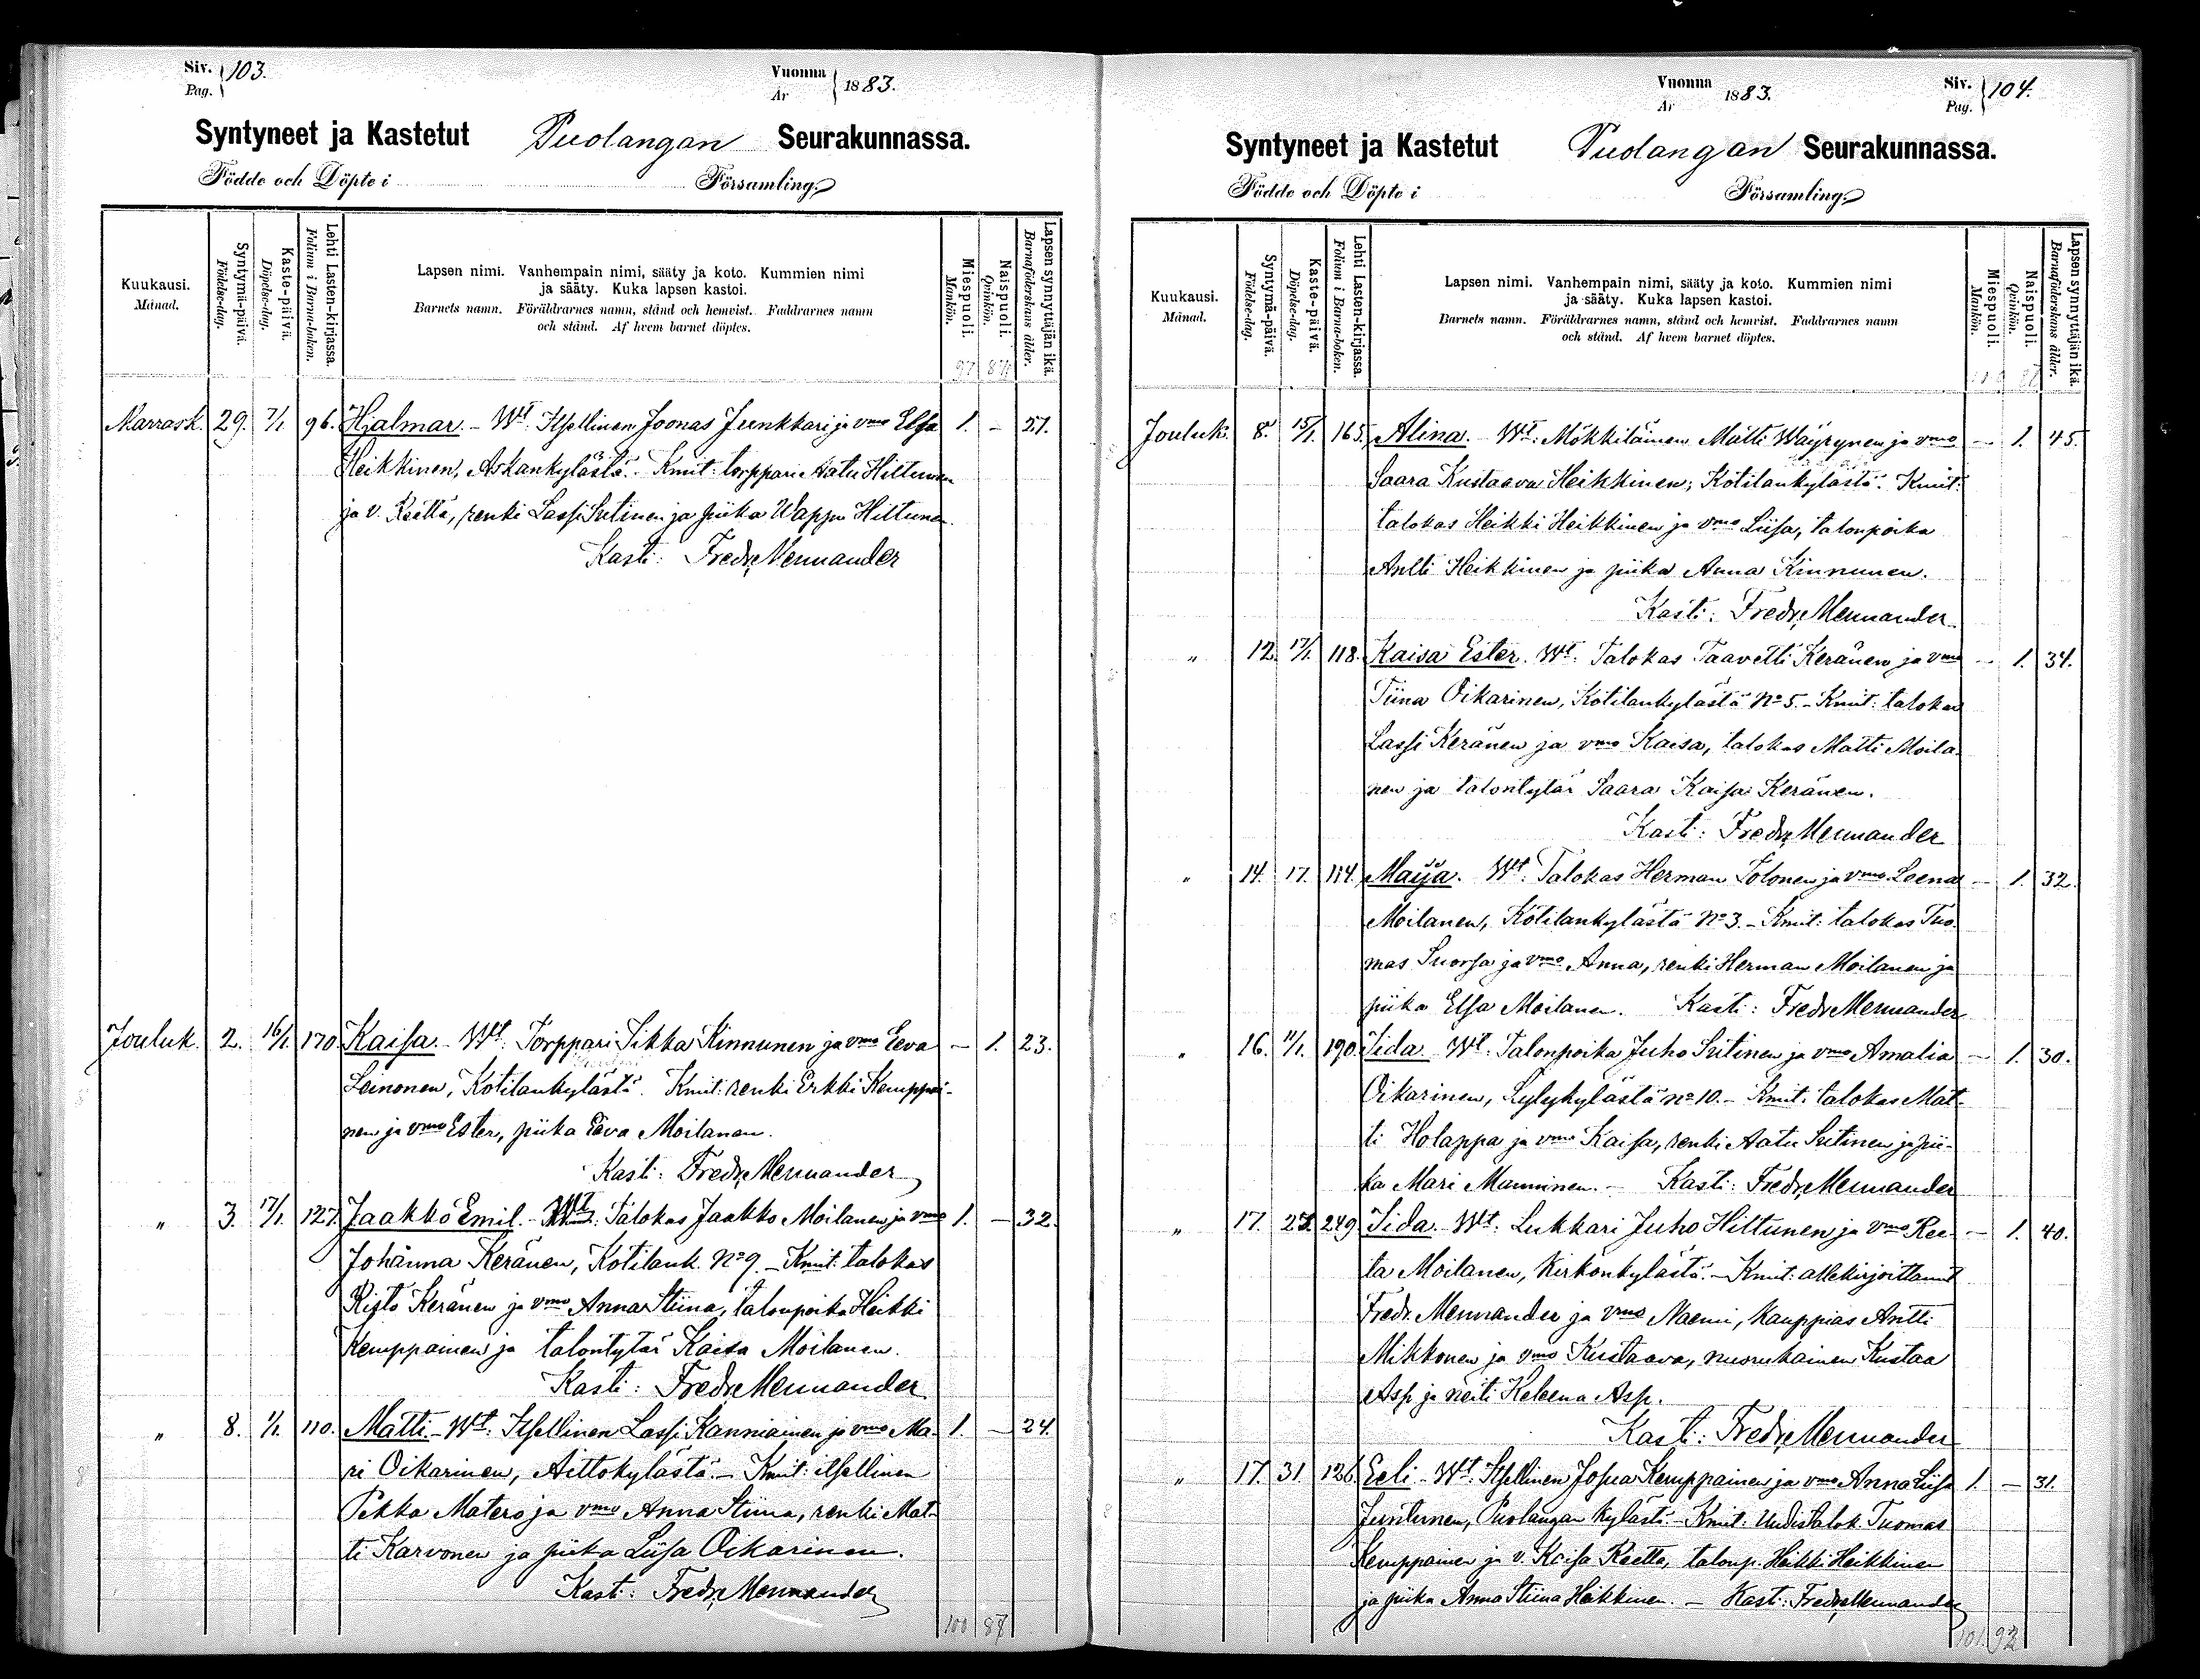 Siv. 103.
Pag.
Vuonna 1883.
År
Syntyneet ja Kastetut Puolangan Seurakunnassa.
Födde och Döpte i Församling.
Kuukausi.
Månad.
Syntymä-päivä.
Födelse-dag.
Kaste-päivä.
Döpelse-dag.
Lehti Lasten-kirjassa.
Folium i Barna-boken.
Lapsen nimi. Vanhempain nimi, sääty ja koto. Kummien nimi
ja sääty. Kuka lapsen kastoi.
Barnets namn. Föräldrarnes namn, stånd och hemvist. Faddrarnes namn
och stånd. Af hvem barnet döptes.
Miespuoli.
Mankön.
Naispuoli.
Qvinkön.
Lapsen synnyttäjän ikä.
Barnaföderskans ålder.
97 87
Marrask. 29. 7/1. 96. Hjalmar. - Wt. Itsellinen Joonas Junkkari ja vmo Elsa 1. - 27.
Heikkinen, Askankylästä. Kmit: torppari Aatu Hiltunen
ja v. Reetta, renki Lassi Sutinen ja piika Wappu Hiltunen.
Kasti: Fredr. Mennander
Jouluk. 2. 16/1. 170. Kaisa - Wt: Torppari Sikka Kinnunen ja vmo Eeva - 1. 23.
Leinonen, Kotilankylästä. Kmit: renki Erkki Kemppai-
nen ja vmo Ester, piika Eeva Moilanen.
Kasti: Fredr. Mennander
" 3. 17/1. 127. Jaakko Emil. - Wt: Talokas Jaakko Moilanen ja vmo 1. - 32.
Johanna Keränen, Kotilank. No 9. - Kmit: talokas
Risto Keränen ja vmo Anna Stiina, talonpoika Heikki
Kemppainen ja talontytär Kaisa Moilanen.
Kasti: Fredr. Mennander
" 8. 1/1. 110. Matti. - Wt: Itsellinen Lassi Kanniainen ja vmo Ma- 1. - 24.
ri Oikarinen, Aittokylästä. - Kmit: itsellinen
Pekka Matero ja vmo Anna Stiina, renki Mat-
ti Karvonen ja piika Liisa Oikarinen.
Kasti: Fredr. Mennander
100 87
Vuonna 1883.
År
Siv. 104.
Pag.
Syntyneet ja Kastetut Puolangan Seurakunnassa.
Födde och Döpte i Församling.
Kuukausi.
Månad.
Syntymä-päivä.
Födelse-dag.
Kaste-päivä.
Döpelse-dag.
Lehti Lasten-kirjassa.
Folium i Barna-boken.
Lapsen nimi. Vanhempain nimi, sääty ja koto. Kummien nimi
ja sääty. Kuka lapsen kastoi.
Barnets namn. Föräldrarnes namn, stånd och hemvist. Faddrarnes namn
och stånd. Af hvem barnet döptes.
Miespuoli.
Mankön.
Naispuoli.
Qvinkön.
Lapsen synnyttäjän ikä.
Barnaföderskans ålder.
Jouluk. 8. 15/1. 165. Alina. Wt: Mökkiläinen Matti Wäyrynen ja vmo - 1. 45.
Saara Kustaava Heikkinen, Kotilankylästä. Kmit:
talokas Heikki Heikkinen ja vmo Liisa, talonpoika
Antti Heikkinen ja piika Anna Kinnunen.
Kasti: Fredr. Mennander
" 12. 17/1. 118. Kaisa Ester. Wt: Talokas Taavetti Keränen ja vmo - 1. 34.
Tiina Oikarinen, Kotilankylästä No 5. - Kmit: talokas
Lassi Keränen ja vmo Kaisa, talokas Matti Moila-
nen ja talontytär Saara Kaisa Keränen.
Kasti: Fredr. Mennander
" 14. 17. 114. Maija. Wt: Talokas Herman Tolonen ja vmo Leena - 1. 32.
Moilanen, Kotilankylästä No 3. - Kmit: talokas Tuo-
mas Suorsa ja vmo Anna, renki Herman Moilanen ja
piika Elsa Moilanen. Kasti: Fredr. Mennander
" 16. 11/1. 190. Iida. Wt: Talonpoika Juho Sutinen ja vmo Amalia - 1. 30.
Oikarinen, Lylykylästä No 10. - Kmit: talokas Mat-
ti Holappa ja vmo Kaisa, renki Aatu Sutinen ja pii-
ka Mari Manninen. - Kasti: Fredr. Mennander
" 17. 27. 249. Iida. Wt: Lukkari Juho Hiltunen ja vmo Ree- - 1. 40.
ta Moilanen, Kirkonkylästä. - Kmit: allekirjoittanut
Fredr. Mennander ja vmo Naemi, Kauppias Antti
Mikkonen ja vmo Kustaava, nuorukainen Kustaa
Asp ja neiti Heleena Asp.
Kasti: Fredr. Mennander
" 17. 31. 126. Eeli. Wt: Itsellinen Josua Kemppainen ja vmo Anna Liisa 1. - 31.
Juntunen, Puolangan kylästä. - Kmit: Uudistalok. Tuomas
Kemppainen ja v. Kaisa Reetta, talonp. Heikki Heikkinen
ja piika Anna Stiina Heikkinen. - Kasti: Fredr. Mennander
101 92